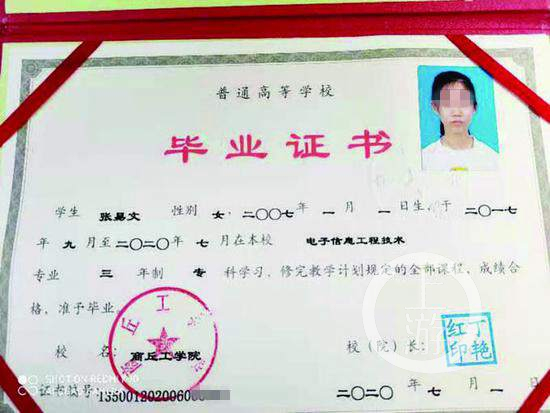 普通高等学校
毕业证书
学生 张易文 性别 女，二〇〇七年 一 月 一 日生，于 二〇一七
年 九 月至二〇二〇年 七 月在本校 电子信息工程技术
专业 三 年制 专 科学习，修完教学计划规定的全部课程，成绩合
格，准予毕业。
校 名： 商丘工学院 校（院）长： 丁艳红印
证书编号：135001202006000
二〇二〇年 七 月 一 日
SHOT ON REDMI
AI DUAL CAMERA
上游